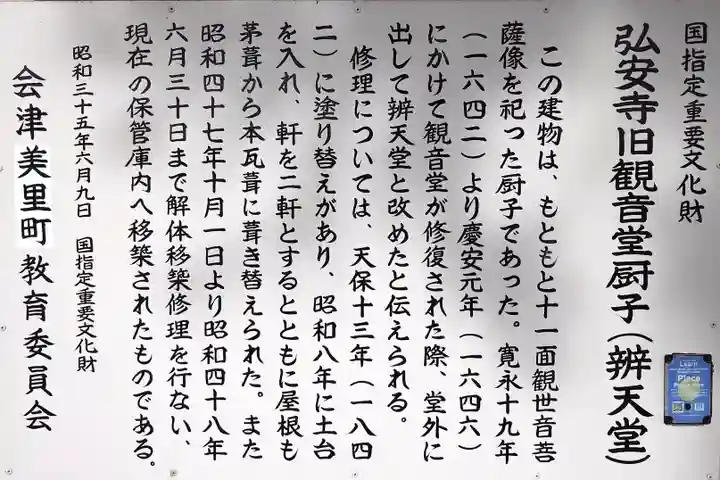 国指定重要文化財
弘安寺旧観音堂厨子(辨天堂)
この建物は、もともと十一面観世音菩
薩像を祀った厨子であった。寛永十九年
(一六四二)より慶安元年(一六四六)
にかけて観音堂が修復された際、堂外に
出して辨天堂と改めたと伝えられる。
修理については、天保十三年(一八四
二)に塗り替えがあり、昭和八年に土台
を入れ、軒を二軒とするとともに屋根も
茅葺から本瓦葺に葺き替えられた。また
昭和四十七年十月一日より昭和四十八年
六月三十日まで解体移築修理を行ない、
現在の保管庫内へ移築されたものである。
昭和三十五年六月九日 国指定重要文化財
会津美里町教育委員会
Learn
Place